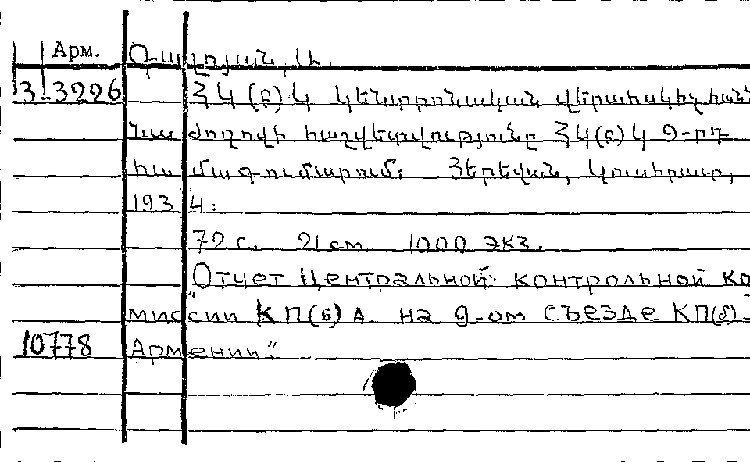 Арм. Գալոյան, Ա.
3-3226 ՀԿ(բ)Կ կենտրոնական վերահսկիչ հանձ
նաժողովի հաշվետվությունը ՀԿ(բ)Կ 9-րդ
համագումարում: Յերեվան, Կուսհրատ,
1934:
72 с. 21 см 1000 экз.
"Отчет Центральной контрольной ко
миссии КП(б)А на 9-ом съезде КП(б)
10778 Армении".